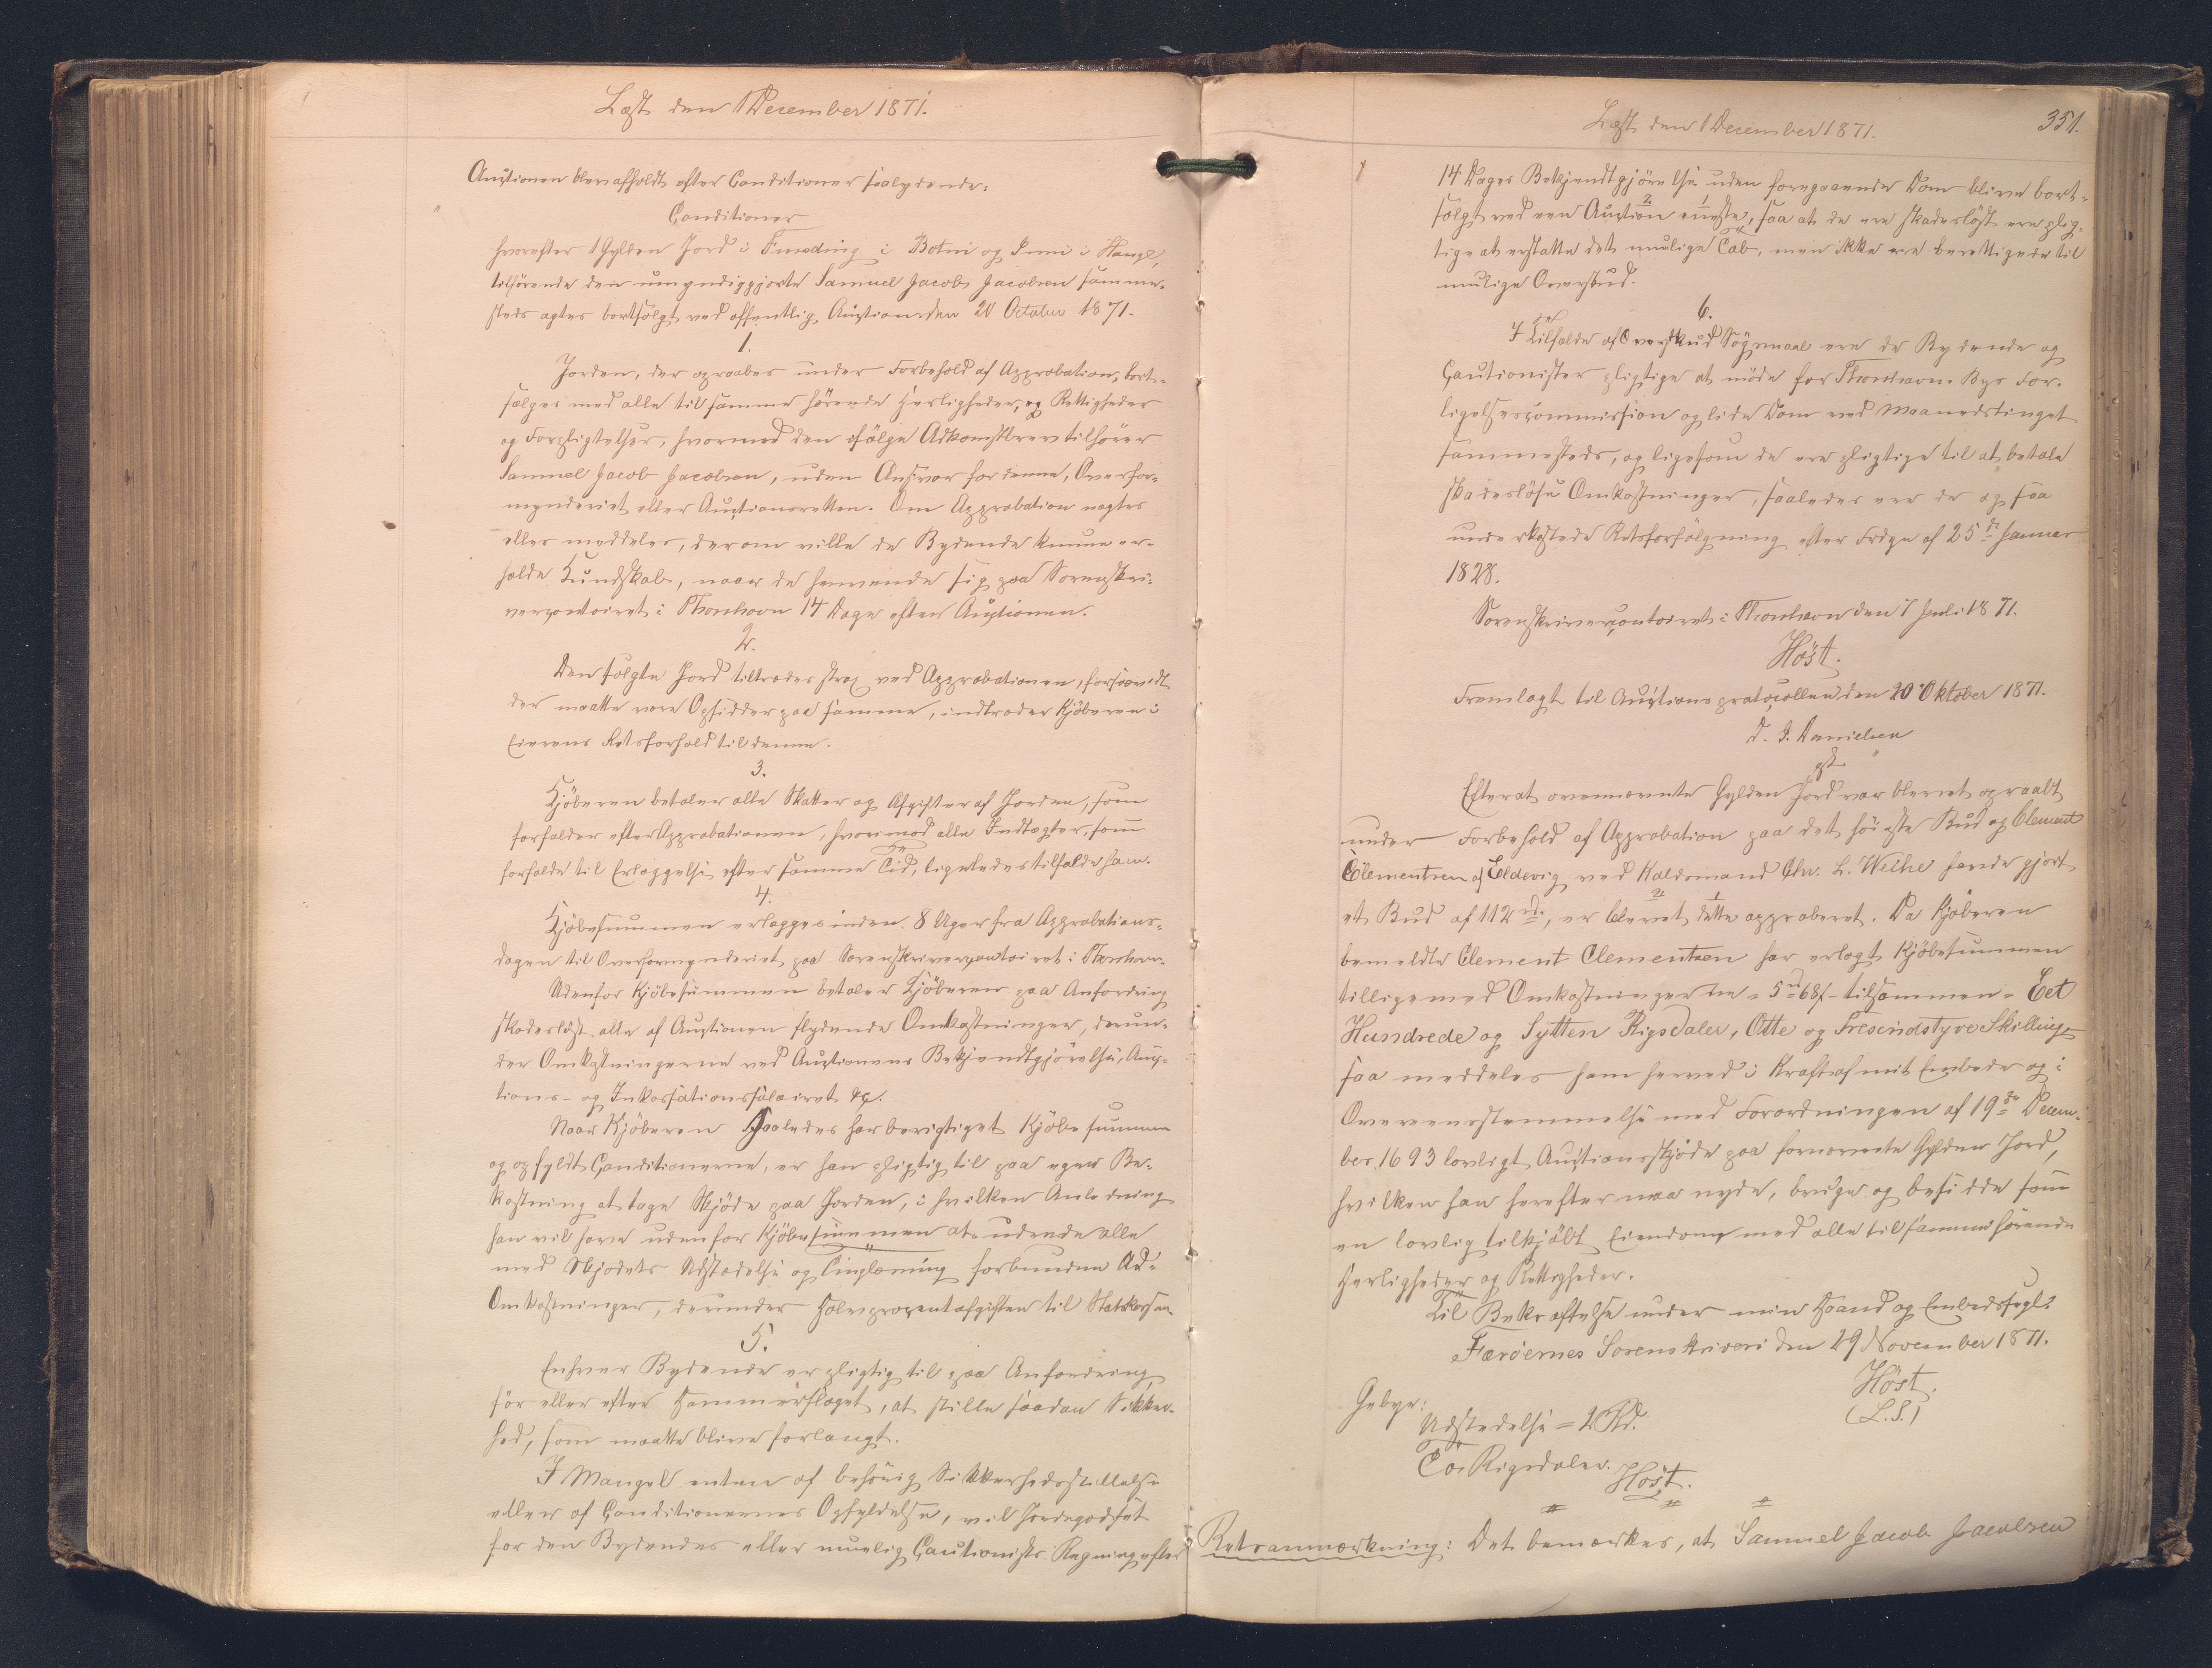 Læst den 1 December 1871.
Auctionen blev afholdt efter Conditioner saalydende:
Conditioner
hvorefter 1 Gylden Jord i Funding i Botni og Inni i Haugl,
tilhørende den umyndiggjorte Samuel Jacob Jacobsen samme-
steds agtes bortsolgt ved offentlig Auction den 20 October 1871.
1.
Jorden, der opraabes under Forbehold af Approbation, bort-
sælges med alle til samme hørende Herligheder, og Rettigheder
og Forpligtelser, hvormed den ifølge Adkomstbrev tilhører
Samuel Jacob Jacobsen, uden Ansvar for denne, Overfor-
mynderiet eller Auctionsretten. Om Approbation nægtes
eller meddeles, derom ville de Bydende kunne er-
holde Kundskab, naar de henvende sig paa Sorenskri-
vercontoiret i Thorshavn 14 Dage efter Auctionen.
2.
Den solgte Jord tiltrædes strax ved Approbationen, forsaavidt
der maatte være Opsidder paa samme, indtræder Kjøberen i
Eierens Retsforhold til denne.
3.
Kjøberen betaler alle Skatter og Afgifter af Jorden, som
forfalder efter Approbationen, hvorimod alle Indtægter, som
forfalde til Erlæggelse efter samme Tid, ligeledes tilfalde ham.
4.
Kjøbesummen erlægges inden 8 Uger fra Approbations-
dagen til Overformynderiet paa Sorenskrivercontoiret i Thorshavn.
Udenfor Kjøbesummen betaler Kjøberen paa Anfordring
skadesløst alle af Auctionen flydende Omkostninger, derun-
der Omkostningerne ved Auctionens Bekjendtgjørelse, Auc-
tions- og Inkassationssalairet &c.
Naar Kjøberen saaledes har berigtiget Kjøbesummen
og opfyldt Conditionerne, er han pligtig til paa egen Be-
kostning at tage Skjøde paa Jorden, i hvilken Anledning
han vil have udenfor Kjøbesummen at udrede alle
med Skjødets Udstædelse og Tinglæsning forbundne Ad-
Omkostninger, derunder Halvprocentafgiften til Statskassen.
5.
Enhver Bydende er pligtig til paa Anfordring
før eller efter Hammerslaget, at stille saadan Sikker-
hed, som maatte blive forlangt.
I Mangel enten af behørig Sikkerhedsstillelse
eller af Conditionernes Opfyldelse, vil Jordegodset
for den Bydendes eller muelig Cautionists Regning efter
Læst den 1 December 1871.
351.
14 Dages Bekjendtgjørelse uden foregaaende Dom blive bort-
solgt ved een Auction eneste, saa at de ere skadesløst ere plig-
tige at erstatte det mulige Tab, men ikke ere berettigede til
mulige Overskud.
6.
I Tilfælde af Overskud Søgsmaal ere de Bydende og
Cautionister pligtige at møde for Thorshavns Byes For-
ligelsescommission og lide Dom ved Maanedstinget
sammesteds, og ligesom de ere pligtige til at betale
skadesløse Omkostninger, saaledes ere de og saa
underkastede Retsforfølgning efter Frdgn af 25de Januar
1828.
Sorenskrivercontoiret i Thorshavn den 7 Juli 1871.
Høst.
Fremlagt til Auctionsprotocollen den 20 Oktober 1871.
D. J. Danielsen
gst.
Efterat ovennævnte Gylden Jord var blevet opraabt
under Forbehold af Approbation paa det høieste Bud og Clement
Clementsen af Eldevig ved Kaldsmand Chr. L. Weihe havde gjort
et Bud af 112 rd., er blevet dette approberet. Da Kjøberen
bemeldte Clement Clementsen har erlagt Kjøbesummen
tilligemed Omkostningerne = 5 rd 68 s - tilsammen = Eet
Hundrede og Sytten Rigsdaler, Otte og Tresindstyve Skilling,
saa meddeles ham herved i Kraft af mit Embede og i
Overeensstemmelse med Forordningen af 19de Decem-
ber 1693 lovligt Auctionsskjøde paa fornævnte Gylden Jord,
hvilken han herefter maa nyde, bruge og besidde som
en lovlig tilkjøbt Eiendom med alle til samme hørende
Herligheder og Rettigheder.
Til Bekræftelse under min Haand og Embedssegl.
Færøernes Sorenskriveri den 29 November 1871.
Høst.
(L.S.)
Gebyr:
Udstedelse = 2 Rd.
To Rigsdaler.
Høst.
Retsanmærkning: Det bemærkes, at Samuel Jacob Jacobsen